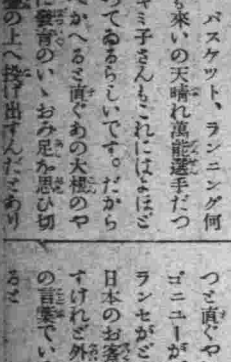 バスケット、ランニング何
も來いの天晴れ萬能選手だつ
ャミ子さんもこれにはよほど
つてゐるらしいです。だから
かへると直ぐあの大根のや
に發育のいゝおみ足を思ひ切
の上へ投げ出すんだとあり
つと直ぐや
ゴニユーが
ランセがど
日本のお客
すけれど外
の言葉でい
ると